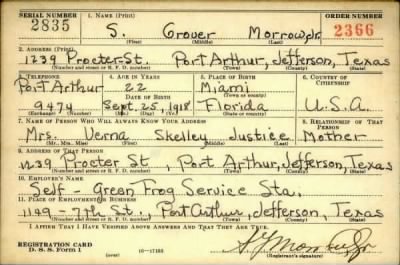 SERIAL NUMBER 1. NAME (Print) ORDER NUMBER
2835 S. Grover Morrow, Jr. 2366
(First) (Middle) (Last)
2. ADDRESS (Print)
1239 Procter St. Port Arthur, Jefferson, Texas
(Number and street or R. F. D. number) (Town) (County) (State)
3. TELEPHONE 4. AGE IN YEARS 5. PLACE OF BIRTH 6. COUNTRY OF CITIZENSHIP
Port Arthur 22 Miami
DATE OF BIRTH (Town or county)
9474 Sept. 25, 1918 Florida U.S.A.
(Exchange) (Number) (Mo.) (Day) (Yr.) (State or country)
7. NAME OF PERSON WHO WILL ALWAYS KNOW YOUR ADDRESS 8. RELATIONSHIP OF THAT PERSON
Mrs. Verna Skelley Justice Mother
(Mr., Mrs., Miss) (First) (Middle) (Last)
9. ADDRESS OF THAT PERSON
1239 Procter St, Port Arthur, Jefferson, Texas
(Number and street or R. F. D. number) (Town) (County) (State)
10. EMPLOYER'S NAME
Self - Green Frog Service Sta.
11. PLACE OF EMPLOYMENT OR BUSINESS
1149 - 7th St., Port Arthur, Jefferson, Texas
(Number and street or R. F. D. number) (Town) (County) (State)
I AFFIRM THAT I HAVE VERIFIED ABOVE ANSWERS AND THAT THEY ARE TRUE.
REGISTRATION CARD
D. S. S. Form 1 16-17105 (Registrant's signature)